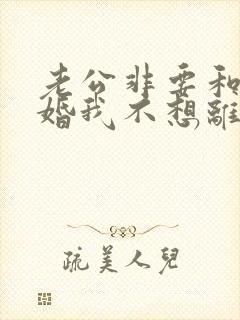 老公非要和
婚我不想離
疏美人兒